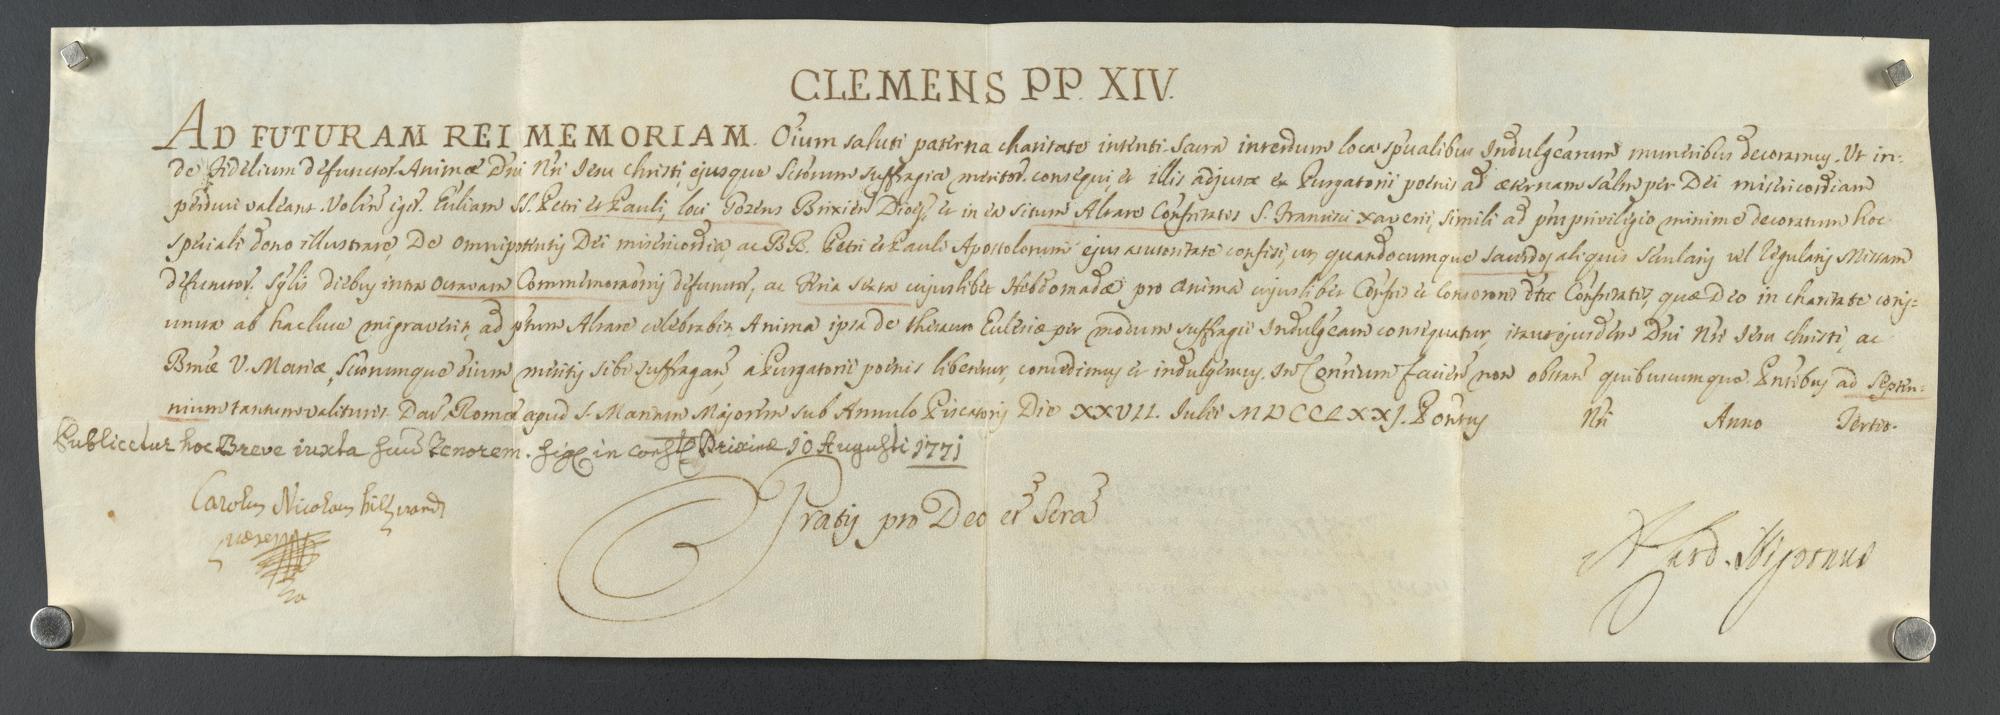 CLEMENS PP. XIV.
AD FUTURAM REI MEMORIAM. Oium saluti paterna charitate intenti sacra interdum loca spualibus Indulgearum muneribus decoramus. Ut in-
de Fidelium defunctor. Animæ Dni Nri Iesu Christi, ejusque Sctorum suffragia meritor. consequi, et illis adjutæ ex Purgatorii poenis ad æternam salm per Dei misericordiam
perduci valeant. Volen igr. Eccliam SS. Petri et Pauli, loci Gozens Brixien Dioec. et in ea situm Altare Confritatis S. Francisci Xaverii, simili ad pns privilegio minime decoratum hoc
speciali dono illustrare, De omnipotentis Dei misericordia, ac BB. Petri et Pauli Apostolorum ejus auctoritate confisi, ut quandocumque sacerdos aliquis Secularis vel Regularis Missam
defunctor. Sglis diebus intra octavam Commemoraonis defunctor, ac Feria sexta cujuslibet Hebdomadæ pro anima cujuslibet Confris et Consororis dtæ Confritatis, quæ Deo in charitate conj-
uncta ab hac luce migraverit, ad pttum Altare celebrabit, Anima ipsa de thesauro Ecclesiæ per modum suffragii Indulgeam consequatur, ita ut ejusdem Dni Nri Iesu Christi, ac
Bmæ V. Mariæ, Sctorumque oium meritis sibi suffragan, a Purgatorii poenis liberetur, concedimus et indulgemus. In Conrium facien non obstan quibuscumque. Pntibus ad Septen-
nium tantum valituris. Dat Romæ apud S. Mariam Majorem sub Annulo Piscatoris Die XXVII. Iulii MDCCLXXI. Pontus Nri Anno Tertio.
Publicetur hoc Breve iuxta suu tenorem. Sig. in Consto Brixinæ 10 Augusti 1771
Carolus Nicolaus
Gratis pro Deo et Scra
A. Card. Nigronus